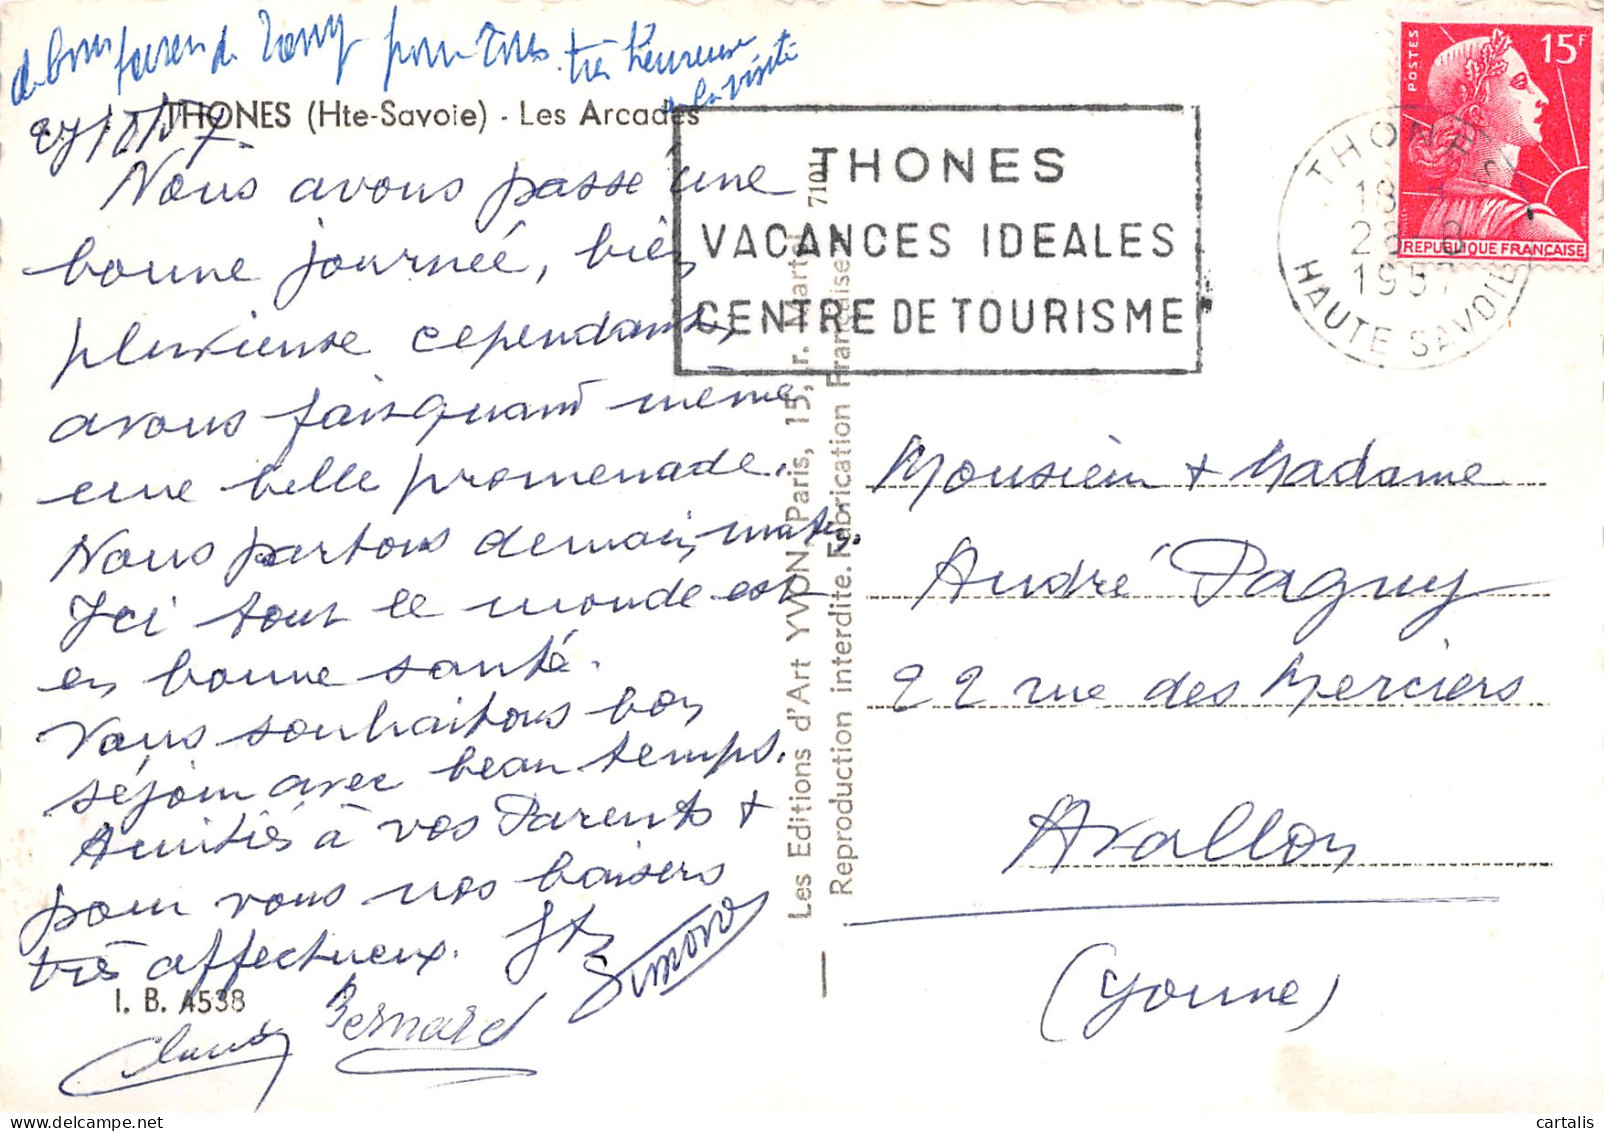 de bons de Tony pour tous très heureuse
de la visite
THONES (Hte-Savoie) - Les Arcades
27/8/57
Nous avons passé une
bonne journée, bien
pluvieuse cependant,
avons fais quand même
une belle promenade.
Nous partons demain matin.
Ici tout le monde est
en bonne santé.
Vous souhaitons bon
séjour avec beau temps.
Amitiés à vos Parents +
pour vous nos baisers
très affectueux.
Simone
Bernard
I. B. A538
7101
Les Editions d'Art YVON, Paris, 15, r. Martel
Reproduction interdite. Fabrication Française
THONES
VACANCES IDEALES
CENTRE DE TOURISME
THONES
18
28-8
1957
HAUTE SAVOIE
POSTES
15F
REPUBLIQUE FRANÇAISE
Monsieur + Madame
André Paguy
22 rue des Merciers
Avallon
(Yonne)
cartalis